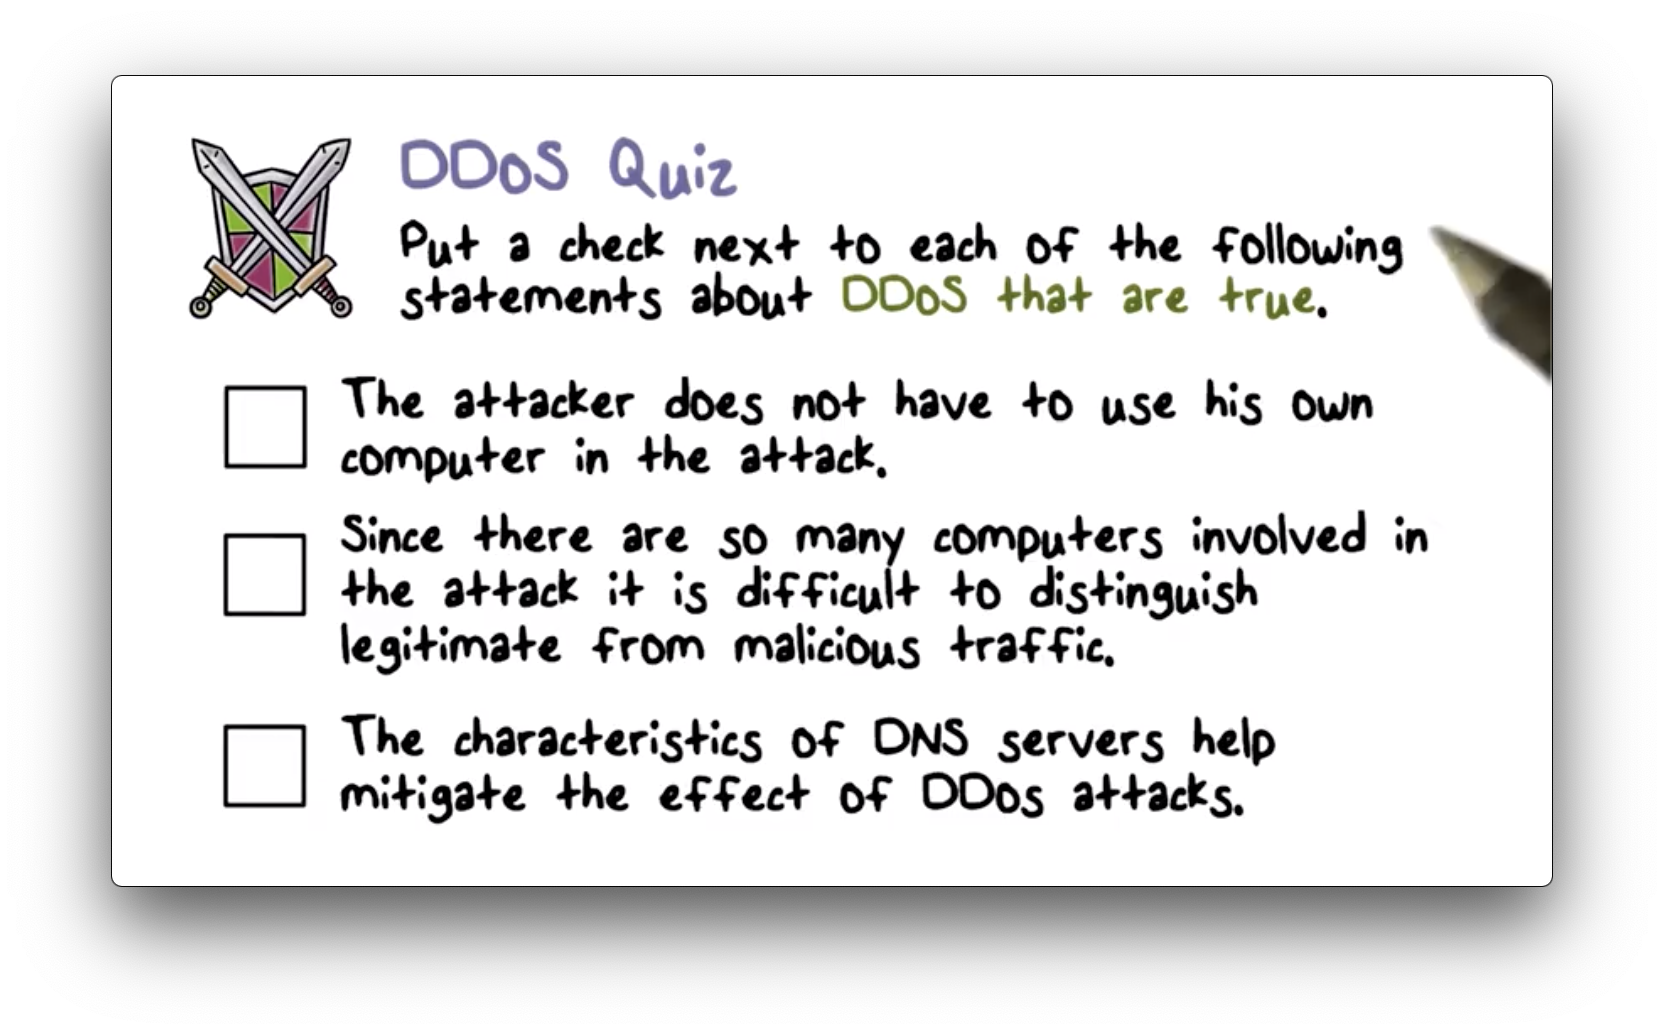 DDoS Quiz
Put a check next to each of the following
statements about DDoS that are true.
The attacker does not have to use his own
computer in the attack.
Since there are so many computers involved in
the attack it is difficult to distinguish
legitimate from malicious traffic.
The characteristics of DNS servers help
mitigate the effect of DDos attacks.